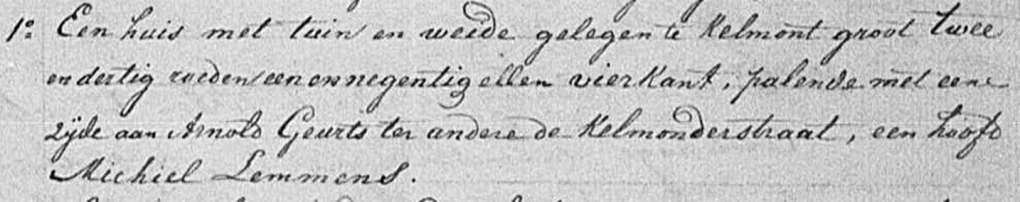 1º Een huis met tuin en weide gelegen te Kelmont groot twee
en dertig roeden een en negentig ellen vierkant, palende met eene
zijde aan Arnold Geurts ter andere de Kelmonderstraat, een hoofd
Michiel Lemmens.